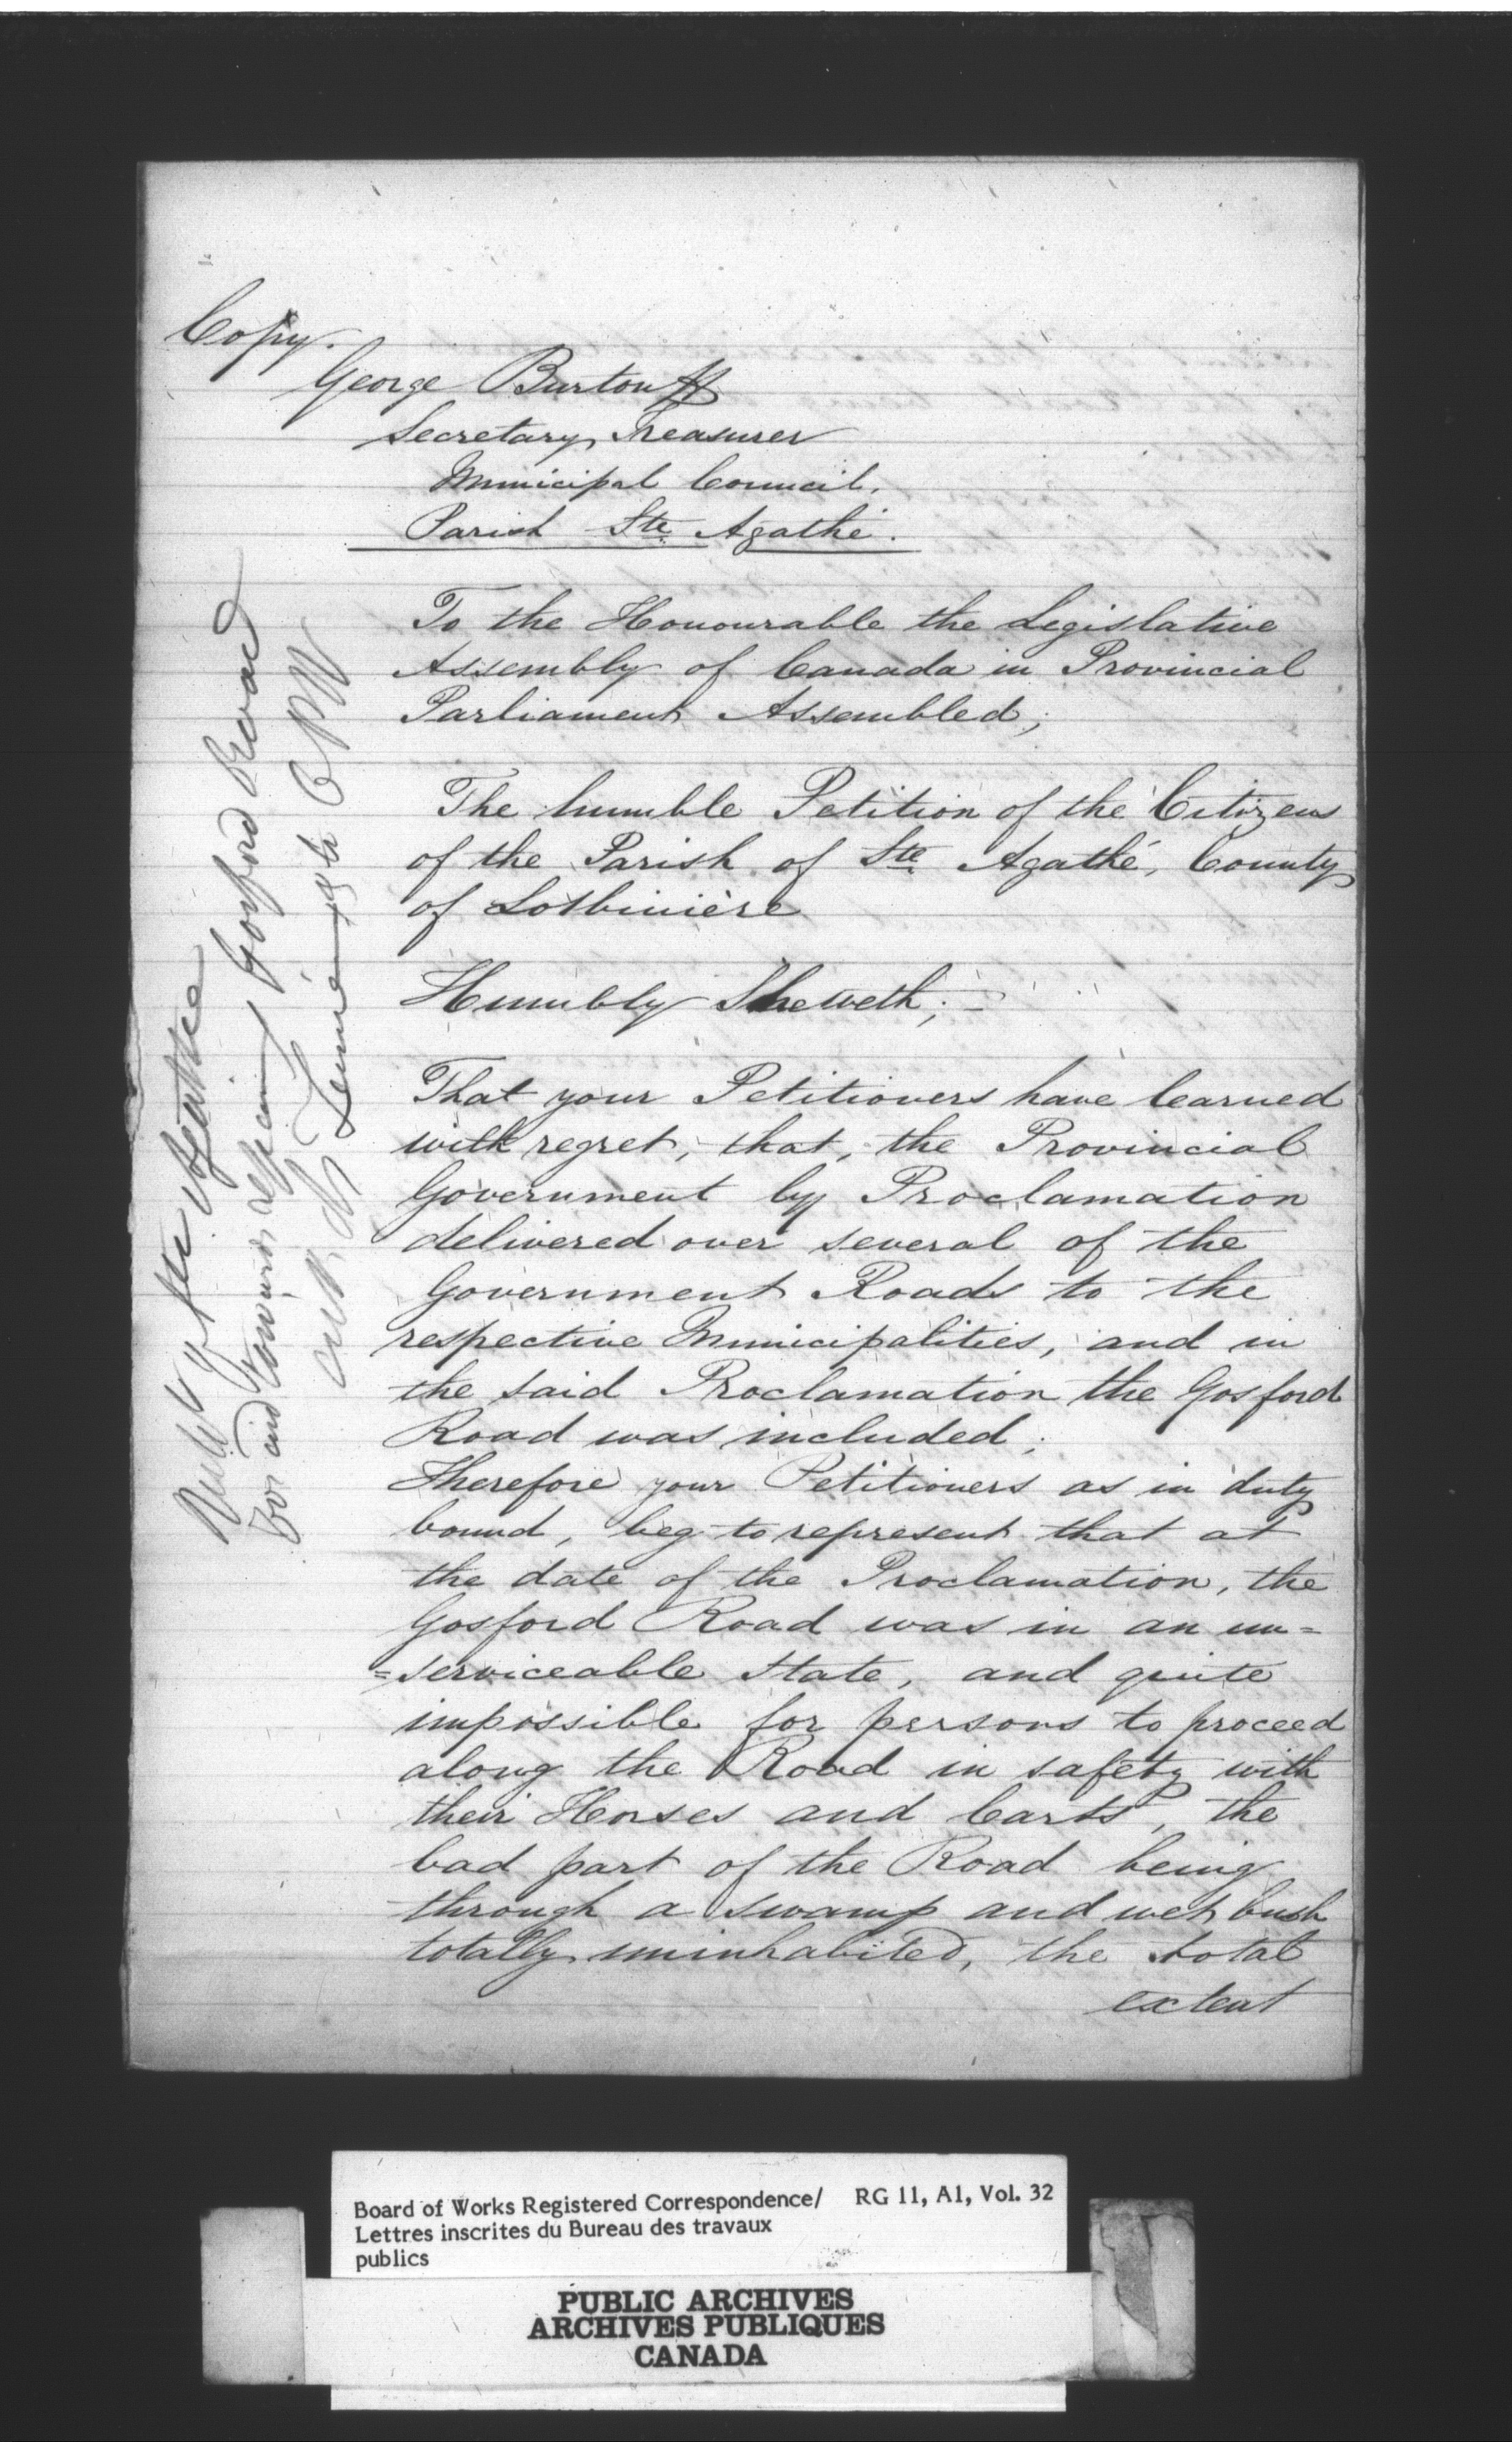 Copy.
George Burton
Secretary Treasurer
Municipal Council,
Parish Ste. Agathé.
To the Honourable the Legislative
Assembly of Canada in Provincial
Parliament Assembled;
The humble Petition of the Citizens
of the Parish of Ste. Agathé, County
of Lotbinière
Humbly Sheweth; -
That your Petitioners have learned
with regret, that, the Provincial
Government by Proclamation
delivered over several of the
Government Roads to the
respective Municipalities, and in
the said Proclamation the Gosford
Road was included;
Therefore your Petitioners as in duty
bound, beg to represent that at
the date of the Proclamation, the
Gosford Road was in an un=
=serviceable State, and quite
impossible for persons to proceed
along the Road in safety with
their Horses and Carts, the
bad part of the Road being
through a swamp and wet bush
totally uninhabited, the total
extent
of Ste Agathe
Gosford Road
Board of Works Registered Correspondence/ RG 11, A1, Vol. 32
Lettres inscrites du Bureau des travaux
publics
PUBLIC ARCHIVES
ARCHIVES PUBLIQUES
CANADA